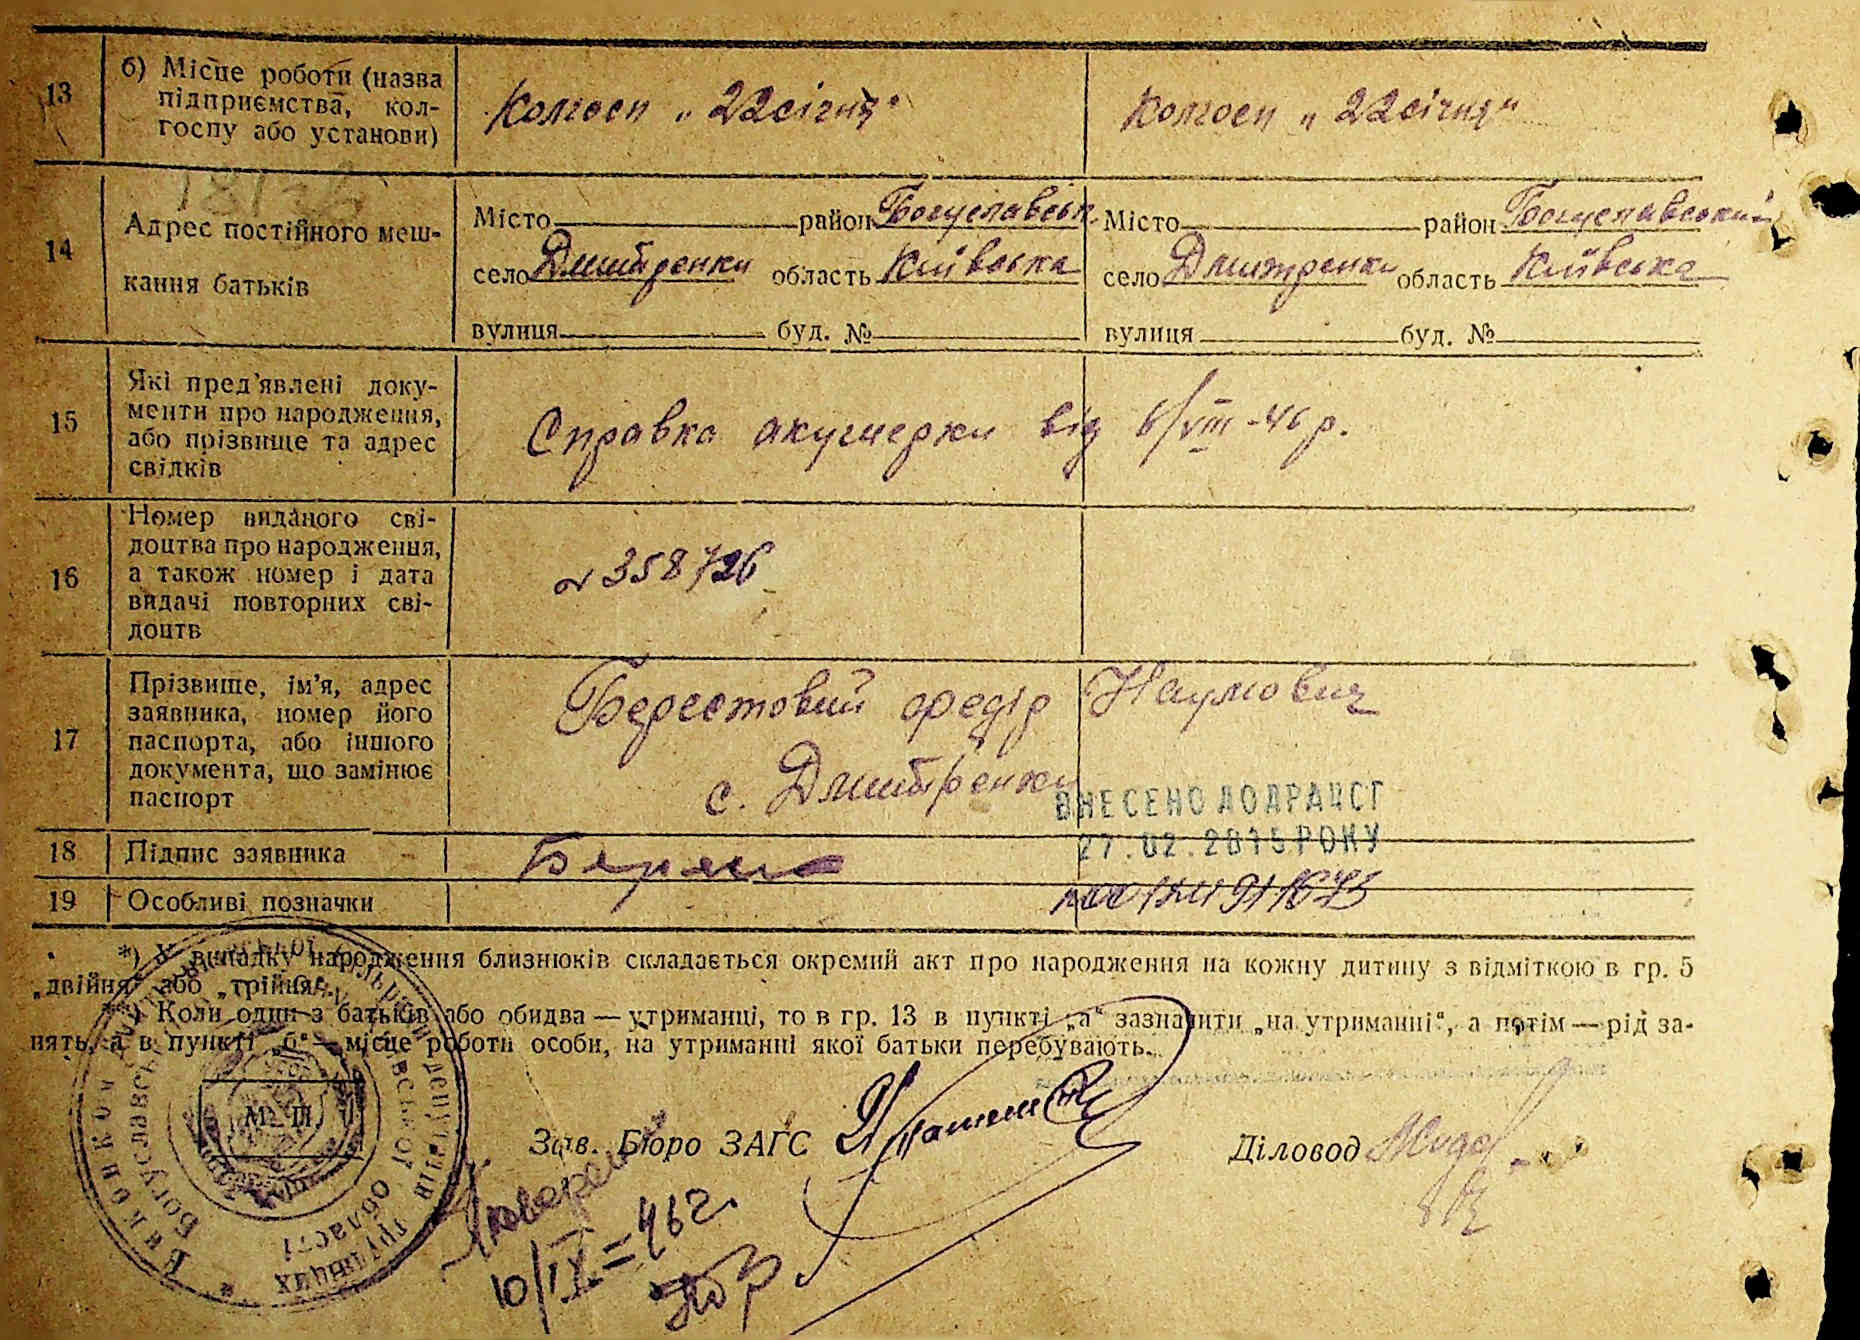 13
б) Місце роботи (назва
підприємства, кол-
госпу або установи)
Колгосп „22 січня"
Колгосп „22 січня"
14
Адрес постійного меш-
кання батьків
Місто район Богуславськ.
село Дмитренки область Київська
вулиця буд. №
Місто район Богуславський
село Дмитренки область Київська
вулиця буд. №
15
Які пред'явлені доку-
менти про народження,
або прізвище та адрес
свідків
Справка акушерки від 6/VIII-46 р.
16
Номер виданого сві-
доцтва про народження,
а також номер і дата
видачі повторних сві-
доцтв
№ 358726
17
Прізвище, ім'я, адрес
заявника, номер його
паспорта, або іншого
документа, що замінює
паспорт
Берестовий Федір Наумович
с. Дмитренки
ВНЕСЕНО ДО ДРАЦСГ
27.02.2015 РОКУ
18
Підпис заявника
19
Особливі позначки
*) У випадку народження близнюків складається окремий акт про народження на кожну дитину з відміткою в гр. 5
„двійня" або „трійня".
**) Коли один з батьків або обидва — утриманці, то в гр. 13 в пункті „а" зазначити „на утриманні", а потім — рід за-
нять, а в пункті „б" — місце роботи особи, на утриманні якої батьки перебувають.
М. П.
Зав. Бюро ЗАГС
Діловод
10/IX=46 г.